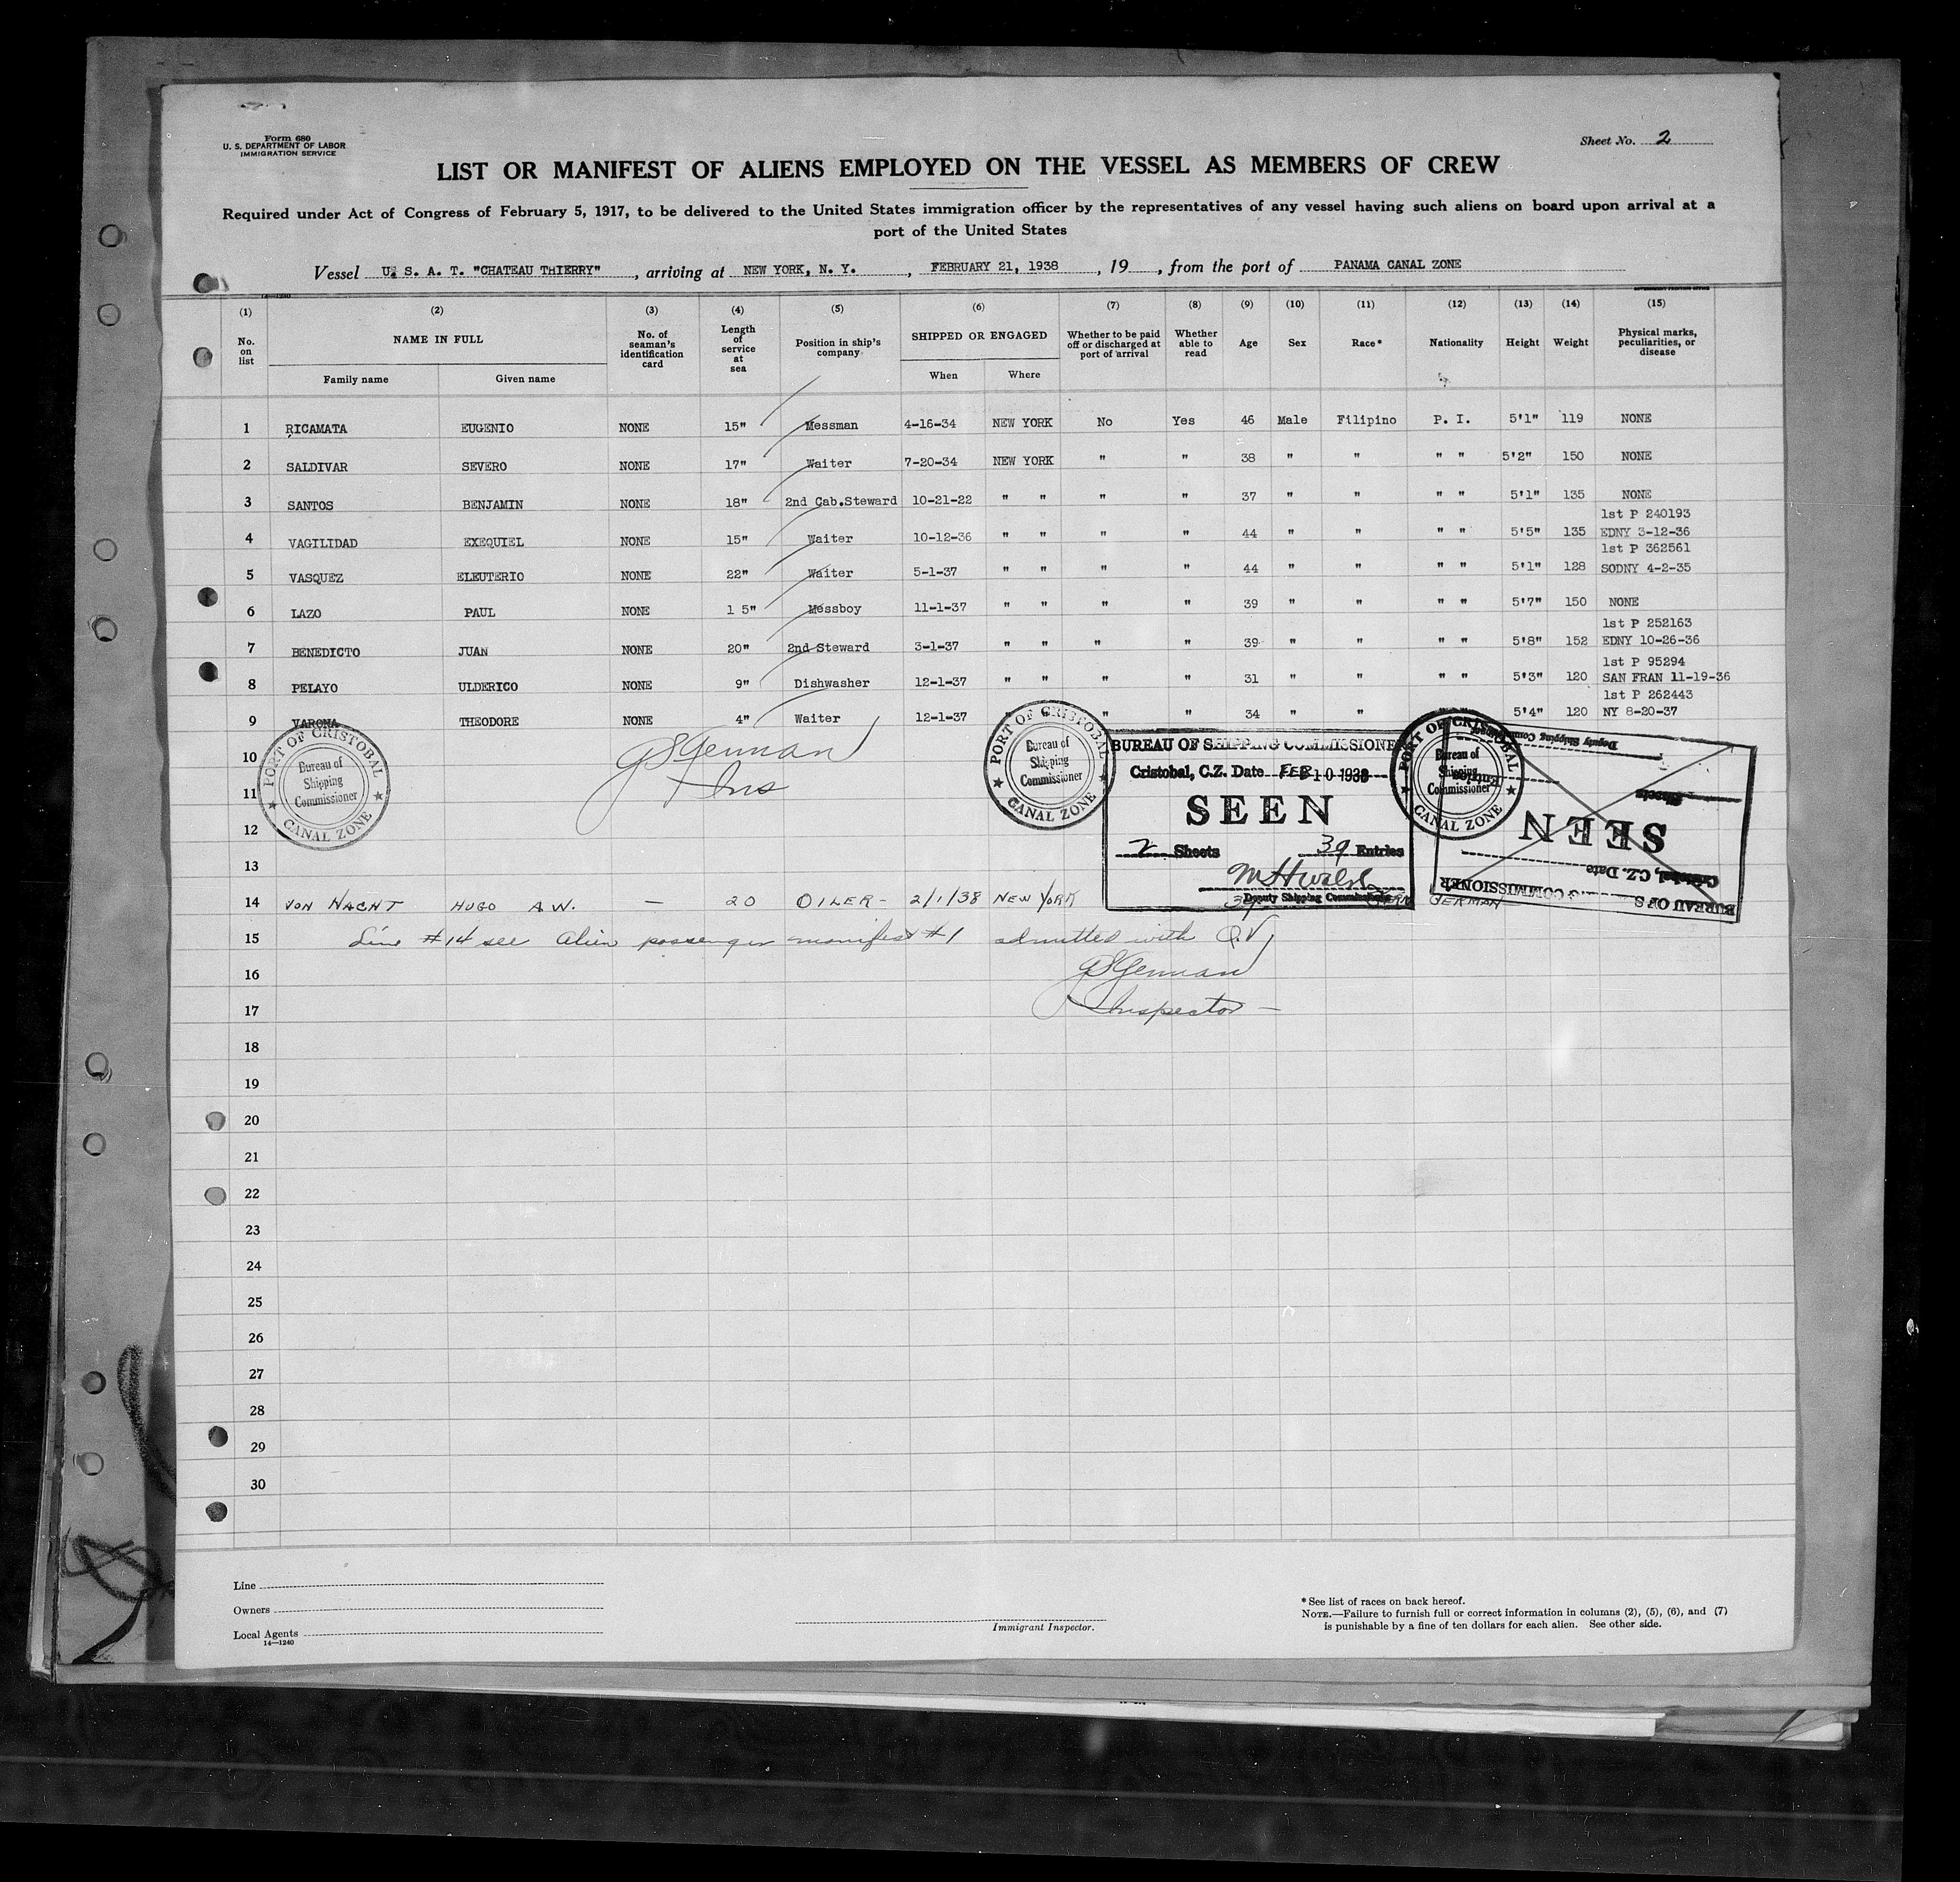 Form 680
U. S. DEPARTMENT OF LABOR
IMMIGRATION SERVICE
Sheet No. 2
LIST OR MANIFEST OF ALIENS EMPLOYED ON THE VESSEL AS MEMBERS OF CREW
Required under Act of Congress of February 5, 1917, to be delivered to the United States immigration officer by the representatives of any vessel having such aliens on board upon arrival at a
port of the United States
Vessel U. S. A. T. "CHATEAU THIERRY", arriving at NEW YORK, N. Y., FEBRUARY 21, 1938, 19, from the port of PANAMA CANAL ZONE
14-1240
(1) (2) (3) (4) (5) (6) (7) (8) (9) (10) (11) (12) (13) (14) (15)
No. on list NAME IN FULL No. of seaman's identification card Length of service at sea Position in ship's company SHIPPED OR ENGAGED Whether to be paid off or discharged at port of arrival Whether able to read Age Sex Race* Nationality Height Weight Physical marks, peculiarities, or disease
Family name Given name When Where
1 RICAMATA EUGENIO NONE 15" Messman 4-16-34 NEW YORK No Yes 46 Male Filipino P. I. 5'1" 119 NONE
2 SALDIVAR SEVERO NONE 17" Waiter 7-20-34 NEW YORK " " 38 " " " " 5'2" 150 NONE
3 SANTOS BENJAMIN NONE 18" 2nd Cab.Steward 10-21-22 " " " " 37 " " " " 5'1" 135 NONE
1st P 240193
4 VAGILIDAD EXEQUIEL NONE 15" Waiter 10-12-36 " " " " 44 " " " " 5'5" 135 EDNY 3-12-36
1st P 362561
5 VASQUEZ ELEUTERIO NONE 22" Waiter 5-1-37 " " " " 44 " " " " 5'1" 128 SODNY 4-2-35
6 LAZO PAUL NONE 1 5" Messboy 11-1-37 " " " " 39 " " " " 5'7" 150 NONE
1st P 252163
7 BENEDICTO JUAN NONE 20" 2nd Steward 3-1-37 " " " " 39 " " " " 5'8" 152 EDNY 10-26-36
1st P 95294
8 PELAYO ULDERICO NONE 9" Dishwasher 12-1-37 " " " " 31 " " " " 5'3" 120 SAN FRAN 11-19-36
1st P 262443
9 VARONA THEODORE NONE 4" Waiter 12-1-37 " " " " 34 " " 5'4" 120 NY 8-20-37
PORT OF CRISTOBAL
Bureau of
Shipping
Commissioner
CANAL ZONE
Ins
PORT OF CRISTOBAL
Bureau of
Shipping
Commissioner
CANAL ZONE
BUREAU OF SHIPPING COMMISSIONER
Cristobal, C.Z. Date FEB 10 1938
SEEN
2 Sheets 39 Entries
Deputy Shipping Commissioner
PORT OF CRISTOBAL
Bureau of
Shipping
Commissioner
CANAL ZONE
BUREAU OF S COMMISSIONER
Cristobal, C.Z. Date
SEEN
Sheets Entries
Deputy Shipping Commissioner
10
11
12
13
14 VON NACHT HUGO A W. — 20 OILER - 2/1/38 NEW YORK GERMAN
15 Line #14 see alien passenger manifest #1 admitted with
16
17 Inspector —
18
19
20
21
22
23
24
25
26
27
28
29
30
Line
Owners
Local Agents
14—1240
Immigrant Inspector.
* See list of races on back hereof.
NOTE.—Failure to furnish full or correct information in columns (2), (5), (6), and (7)
is punishable by a fine of ten dollars for each alien. See other side.